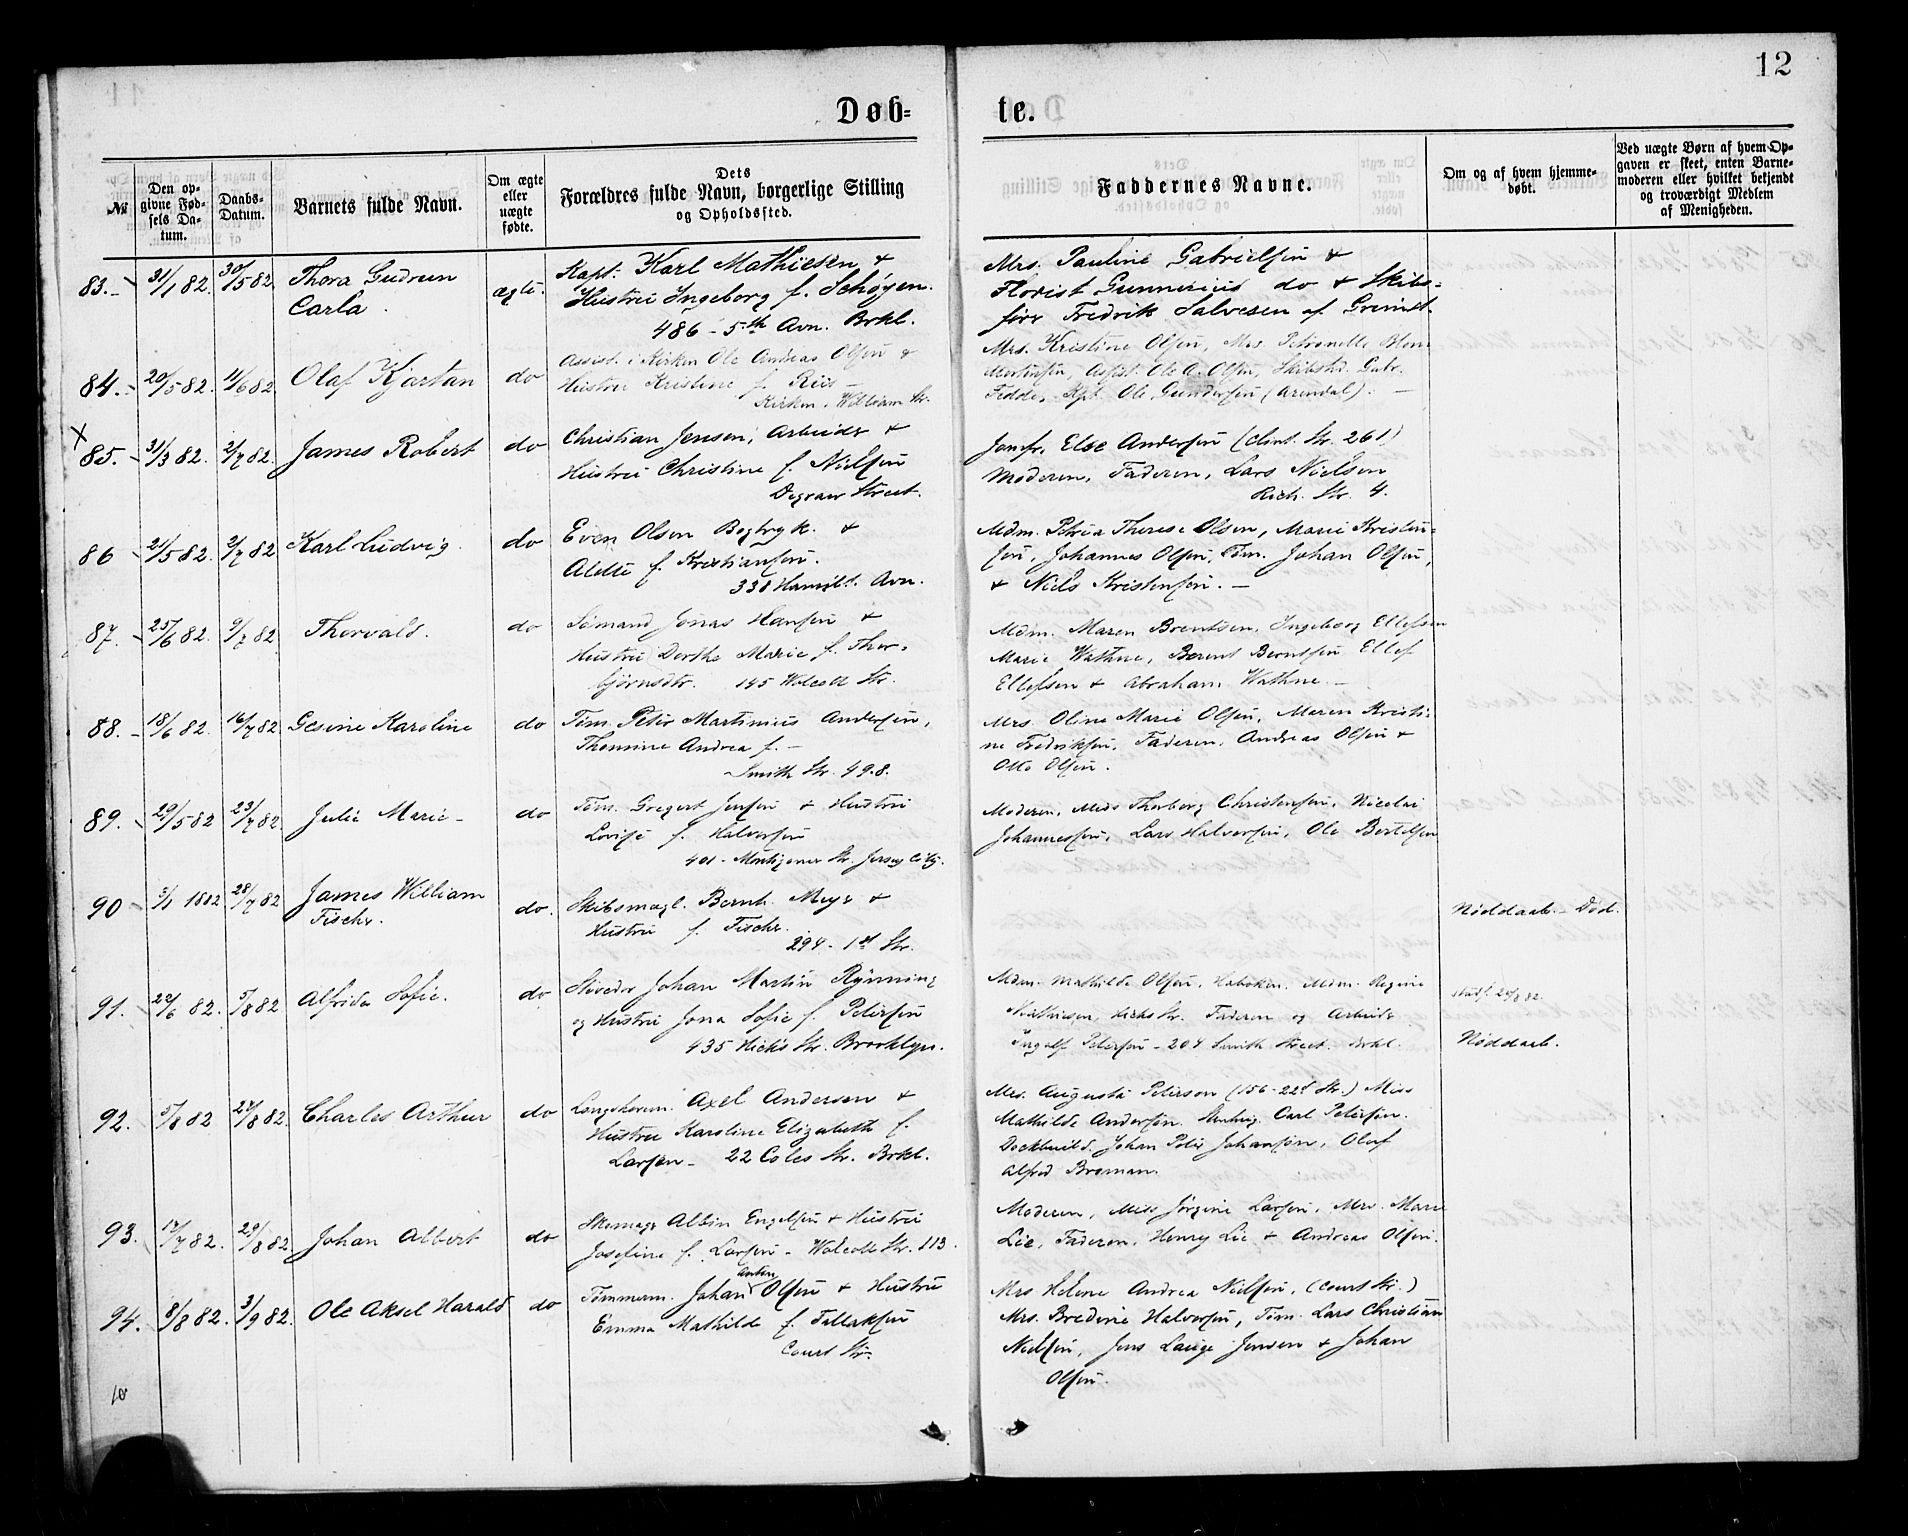 12
Døb-
te.
№
Den op-
givne Fød-
sels Da-
tum.
Daabs-
Datum.
Barnets fulde Navn.
Om ægte
eller
uægte
fødte.
Dets
Forældres fulde Navn, borgerlige Stilling
og Opholdssted.
Faddernes Navne.
Om og af hvem hjemme-
døbt.
Ved uægte Børn af hvem Op-
gaven er skeet, enten Barne-
moderen eller hvilket bekjendt
og troværdigt Medlem
af Menigheden.
83. 31/1 82. 30/5 82 Thora Gudrun
Carla.
ægte.
Kapt. Karl Mathiesen &
Hustru Ingeborg f. Schøyen.
486 - 5th Avn. Brkl.
Mrs. Pauline Gabrielsen &
Florist Gunnerius do & Skibs-
fører Fredrik Salvesen af Grimst.
84. 20/5 82. 11/6 82. Olaf Kjartan do
Assist. i Kirken Ole Andreas Olsen &
Hustru Kristine f. Riis -
Kirken, William Str.
Mrs. Kristine Olsen, Mrs. Petronelle
Mortensen, Assist. Ole A. Olsen, Skibstd. Gabr.
Fedde, Kpt. Ole Gundersen (Arendal). -
X
85. 31/3 82. 2/7 82. James Robert do
Christian Jensen, Arbeider &
Hustru Christine f. Nielsen
Degraw Street.
Jomfr. Else Andersen (Clint. Str. 261)
Moderen, Faderen, Lars Nielsen
Rich. Str. 4.
86 21/5 82. 2/7 82 Karl Ludvig. do
Even Olsen Bogtryk. &
f. Kristiansen.
338 Hamilt. Avn.
Mdm. Petrea Therese Olsen, Marie Kristen-
sen, Johannes Olsen, Tøm. Johan Olsen,
& Niels Kristensen. -
87. 25/6 82. 9/7 82 Thorvald. do
Sømand Jonas Hansen &
Hustru Dorthe Marie f. Thor-
bjørnsdtr. 145 Wolcott Str.
Mdm. Maren Berntsen, Ingeborg Ellefsen
Marie Wathne, Berent Berntsen Ellef
Ellefsen & Abraham Wathne. -
88. 18/6 82. 16/7 82 Gesine Karoline do
Tøm. Peter Martinius Andersen,
Thomine Andrea f. -
Smith Str. 498.
Mrs. Oline Marie Olsen, Maren Kristi-
ne Fredriksen, Faderen, Andreas Olsen &
Otto Olsen.
89. 29/5 82 23/7 82. Julie Marie - do
Tøm. Gregert Jensen & Hustru
Lovise f. Halvorsen
401 - Str. Jersey City.
Moderen, Miss Thorborg Christensen, Nicolai
Johannessen, Lars Halvorsen, Ole Bertelsen
90 3/1 1882 28/7 82 James William
Fischer.
do.
Skibsmægl. Bernh. Meyer &
Hustru f. Fischer.
294 - 1st Str.
Nøddaab. - Død.
91. 22/6 82. 5/8 82 Alfrida Sofie. do
Stivedor Johan Martin Rynning
og Hustru Jona Sofie f. Petersen
435 Hicks Str. Brooklyn.
Mdm. Mathilde Olsen, Hoboken, Mdm. Regine
Mathiesen, Hicks Str. Faderen og Arbeider
Ingolf Petersen - 204 Smith Street. Brkl.
Nøddaab.
92. 5/8 82 27/8 82. Charles Arthur do
Longshorem. Axel Andersen &
Hustru Karoline Elizabeth f.
Larsen - 22 Coles Str. Brkl.
Mrs. Augusta Peterson (156 - 22d Str.) Miss
Mathilde Andersen. Carl Petersen.
Dockbuild. Johan Peter Johansen, Olaf
Alfred Broman.
93. 17/7 82. 29/8 82. Johan Albert do
Skomager Albin Engelsen & Hustru
Josefine f. Larsen - Wolcott Str. 113.
Moderen, Miss Jørgine Larsen, Mrs. Marie
Lie, Faderen, Henry Lie & Andreas Olsen.
94. 8/8 82. 3/9 82. Ole Aksel Harald do
Anton
Tømmerm. Johan Olsen & Hustru
Emma Mathilde f. Tallaksen
Court Str.
Mrs Helene Andrea Nielsen, (Court Str.)
Mrs. Bredine Halvorsen, Tøm. Lars Christian
Nielsen, Jens Lauge Jensen & Johan
Olsen.